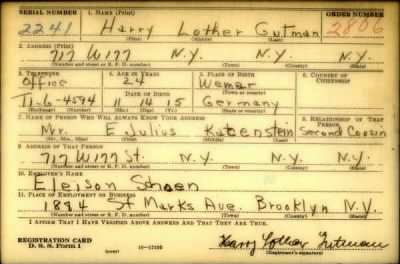 SERIAL NUMBER 1. NAME (Print) ORDER NUMBER
2241 Harry Lother Gutman 2806
(First) (Middle) (Last)
2. ADDRESS (Print)
717 W177 N.Y. N.Y.
(Number and street or R. F. D. number) (Town) (County) (State)
3. TELEPHONE 4. AGE IN YEARS 5. PLACE OF BIRTH 6. COUNTRY OF CITIZENSHIP
Office 24 Wemar
DATE OF BIRTH (Town or county)
TI-6-4594 11 14 15 Germany
(Exchange) (Number) (Mo.) (Day) (Yr.) (State or country)
7. NAME OF PERSON WHO WILL ALWAYS KNOW YOUR ADDRESS 8. RELATIONSHIP OF THAT PERSON
Mr. E Julius Katzenstein Second Cousin
(Mr., Mrs., Miss) (First) (Middle) (Last)
9. ADDRESS OF THAT PERSON
717 W177 St. N.Y. N.Y.
(Number and street or R. F. D. number) (Town) (County) (State)
10. EMPLOYER'S NAME
Eleison
11. PLACE OF EMPLOYMENT OR BUSINESS
1884 St Marks Ave. Brooklyn N.Y.
(Number and street or R. F. D. number) (Town) (County) (State)
I AFFIRM THAT I HAVE VERIFIED ABOVE ANSWERS AND THAT THEY ARE TRUE.
REGISTRATION CARD
D. S. S. Form 1 (over) 16-17105 Harry Lothar Gutman
(Registrant's signature)